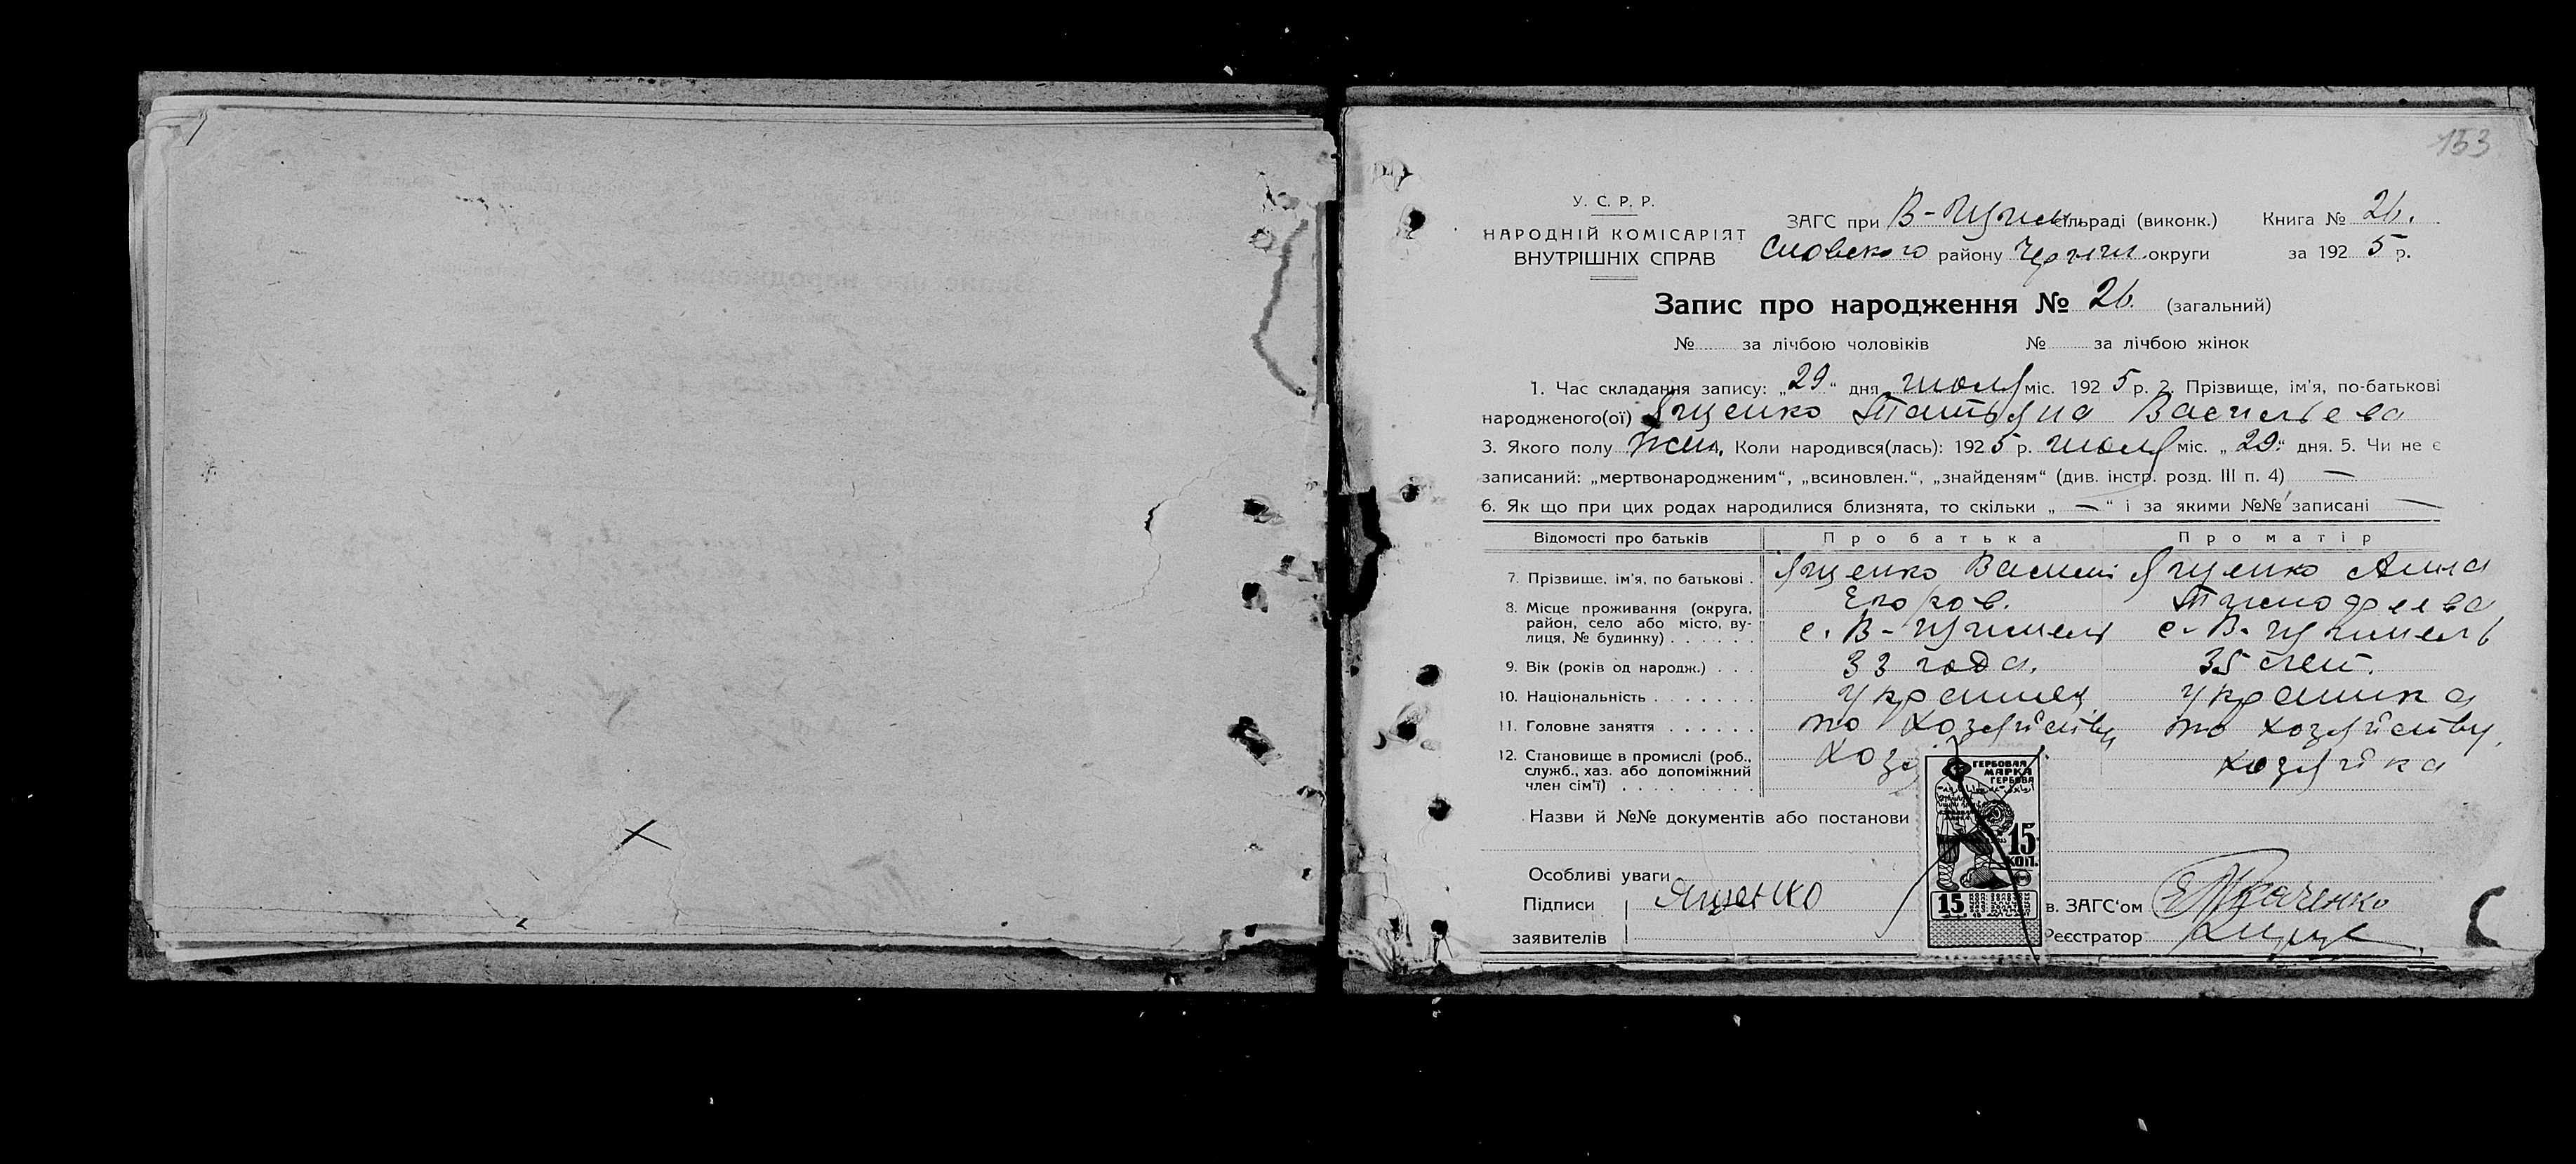 153
У. С. Р. Р.
НАРОДНІЙ КОМІСАРІЯТ
ВНУТРІШНІХ СПРАВ
ЗАГС при В- сільраді (виконк.) Книга № 26.
Сновского району Черниг. округи за 1925 р.
Запис про народження № 26. (загальний)
№ за лічбою чоловіків № за лічбою жінок
1. Час складання запису: „29“ дня июля міс. 1925 р. 2. Прізвище, ім'я, по-батькові
народженого(ої) Ященко Татьяна Васильева
3. Якого полу Жен. 4. Коли народився(лась): 1925 р. июля міс. „29“ дня. 5. Чи не є
записаний: „мертвонародженим“, „всиновлен.“, „знайденям“ (див. інстр. розд. III п. 4) —
6. Як що при цих родах народилися близнята, то скільки „ — “ і за якими №№ записані —
Відомості про батьків Про батька Про матір
7. Прізвище, ім'я, по батькові . Ященко Василий Ященко Анна
Егоров. Тимофеева
8. Місце проживання (округа, район, село або місто, вулиця, № будинку) . . . . . . с. В- с. В-
9. Вік (років од народж.) . . . 33 года. 35 лет.
10. Національність . . . . . . . украинец украинка
11. Головне заняття . . . . . . по хозяйству по хозяйству,
12. Становище в промислі (роб., служб., хаз. або допоміжний член сім'ї) . . . . . . . . Хозя хозяйка
ГЕРБОВАЯ
МАРКА
ГЕРБОВА
15
КОП.
15
Назви й №№ документів або постанови
Особливі уваги
Підписи Ященко в. ЗАГС'ом Ткаченко
заявителів Реєстратор